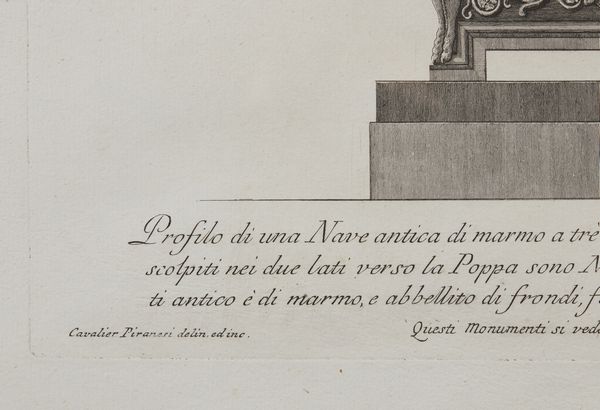 Profilo di una Nave antica di marmo a trè
scolpiti nei due lati verso la Poppa sono
ti antico è di marmo, e abbellito di frondi,
Cavalier Piranesi delin. ed inc.
Questi Monumenti si